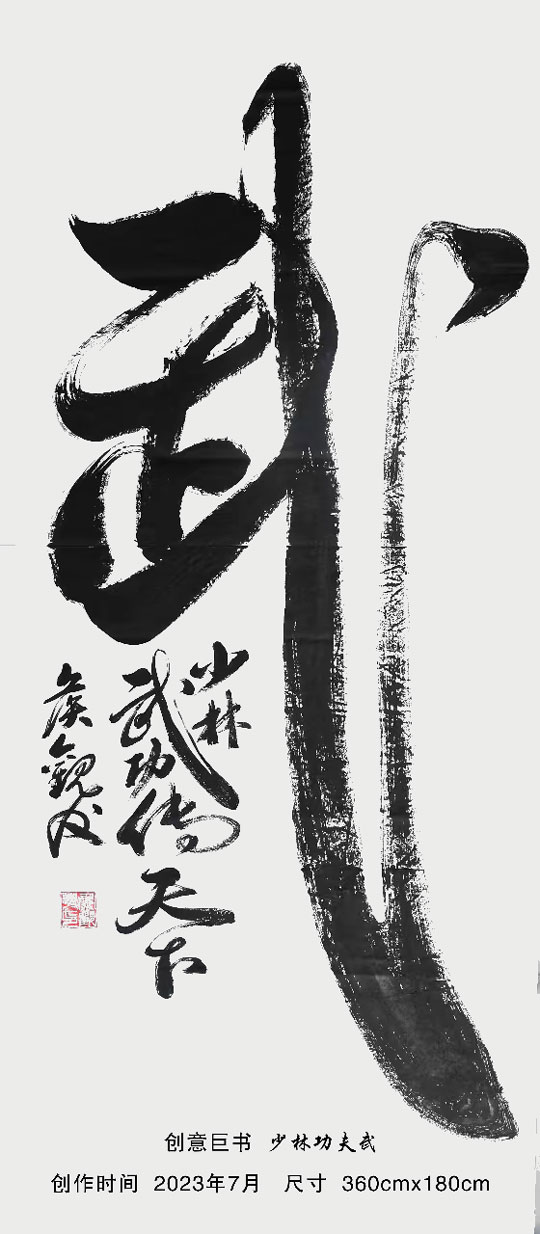 武
少林
武功传天下
创意巨书 少林功夫武
创作时间 2023年7月 尺寸 360cmx180cm